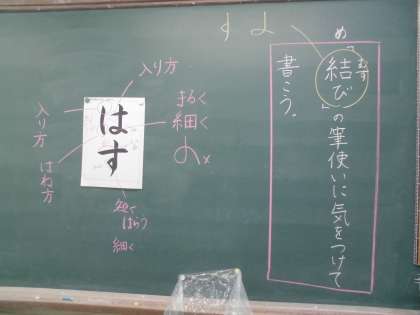 め
「結び」の筆使いに気をつけて
むす
書こう。
す よ
入り方
まるく
細く
はす
入り方
はね方
短く
はらう
細く